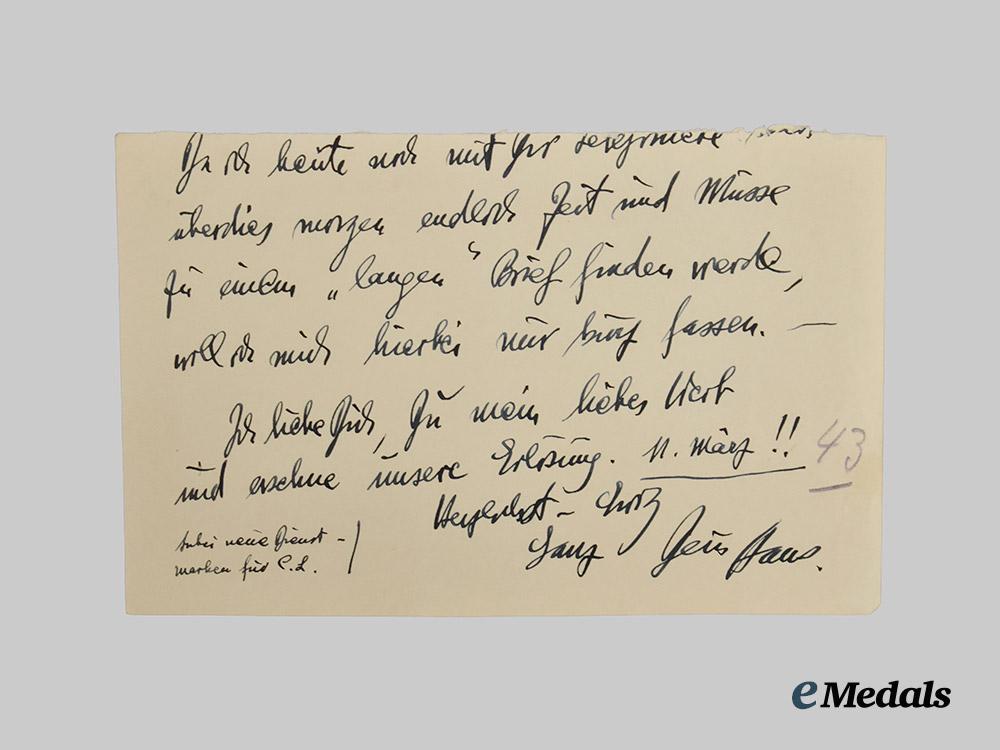 Da ich heute noch mit Dir telefoniere
überdies morgen endlich Zeit und Musse
zu einem „langen“ Brief finden werde,
will ich mich hierbei nur kurz fassen. —
Ich liebe Dich, Du mein liebes Weib
und ersehne unsere Erlösung. 11. März !! 43
Herzlichst –
Ganz Dein Hans.
Anbei neue Dienst-
marken für C.L.
eMedals